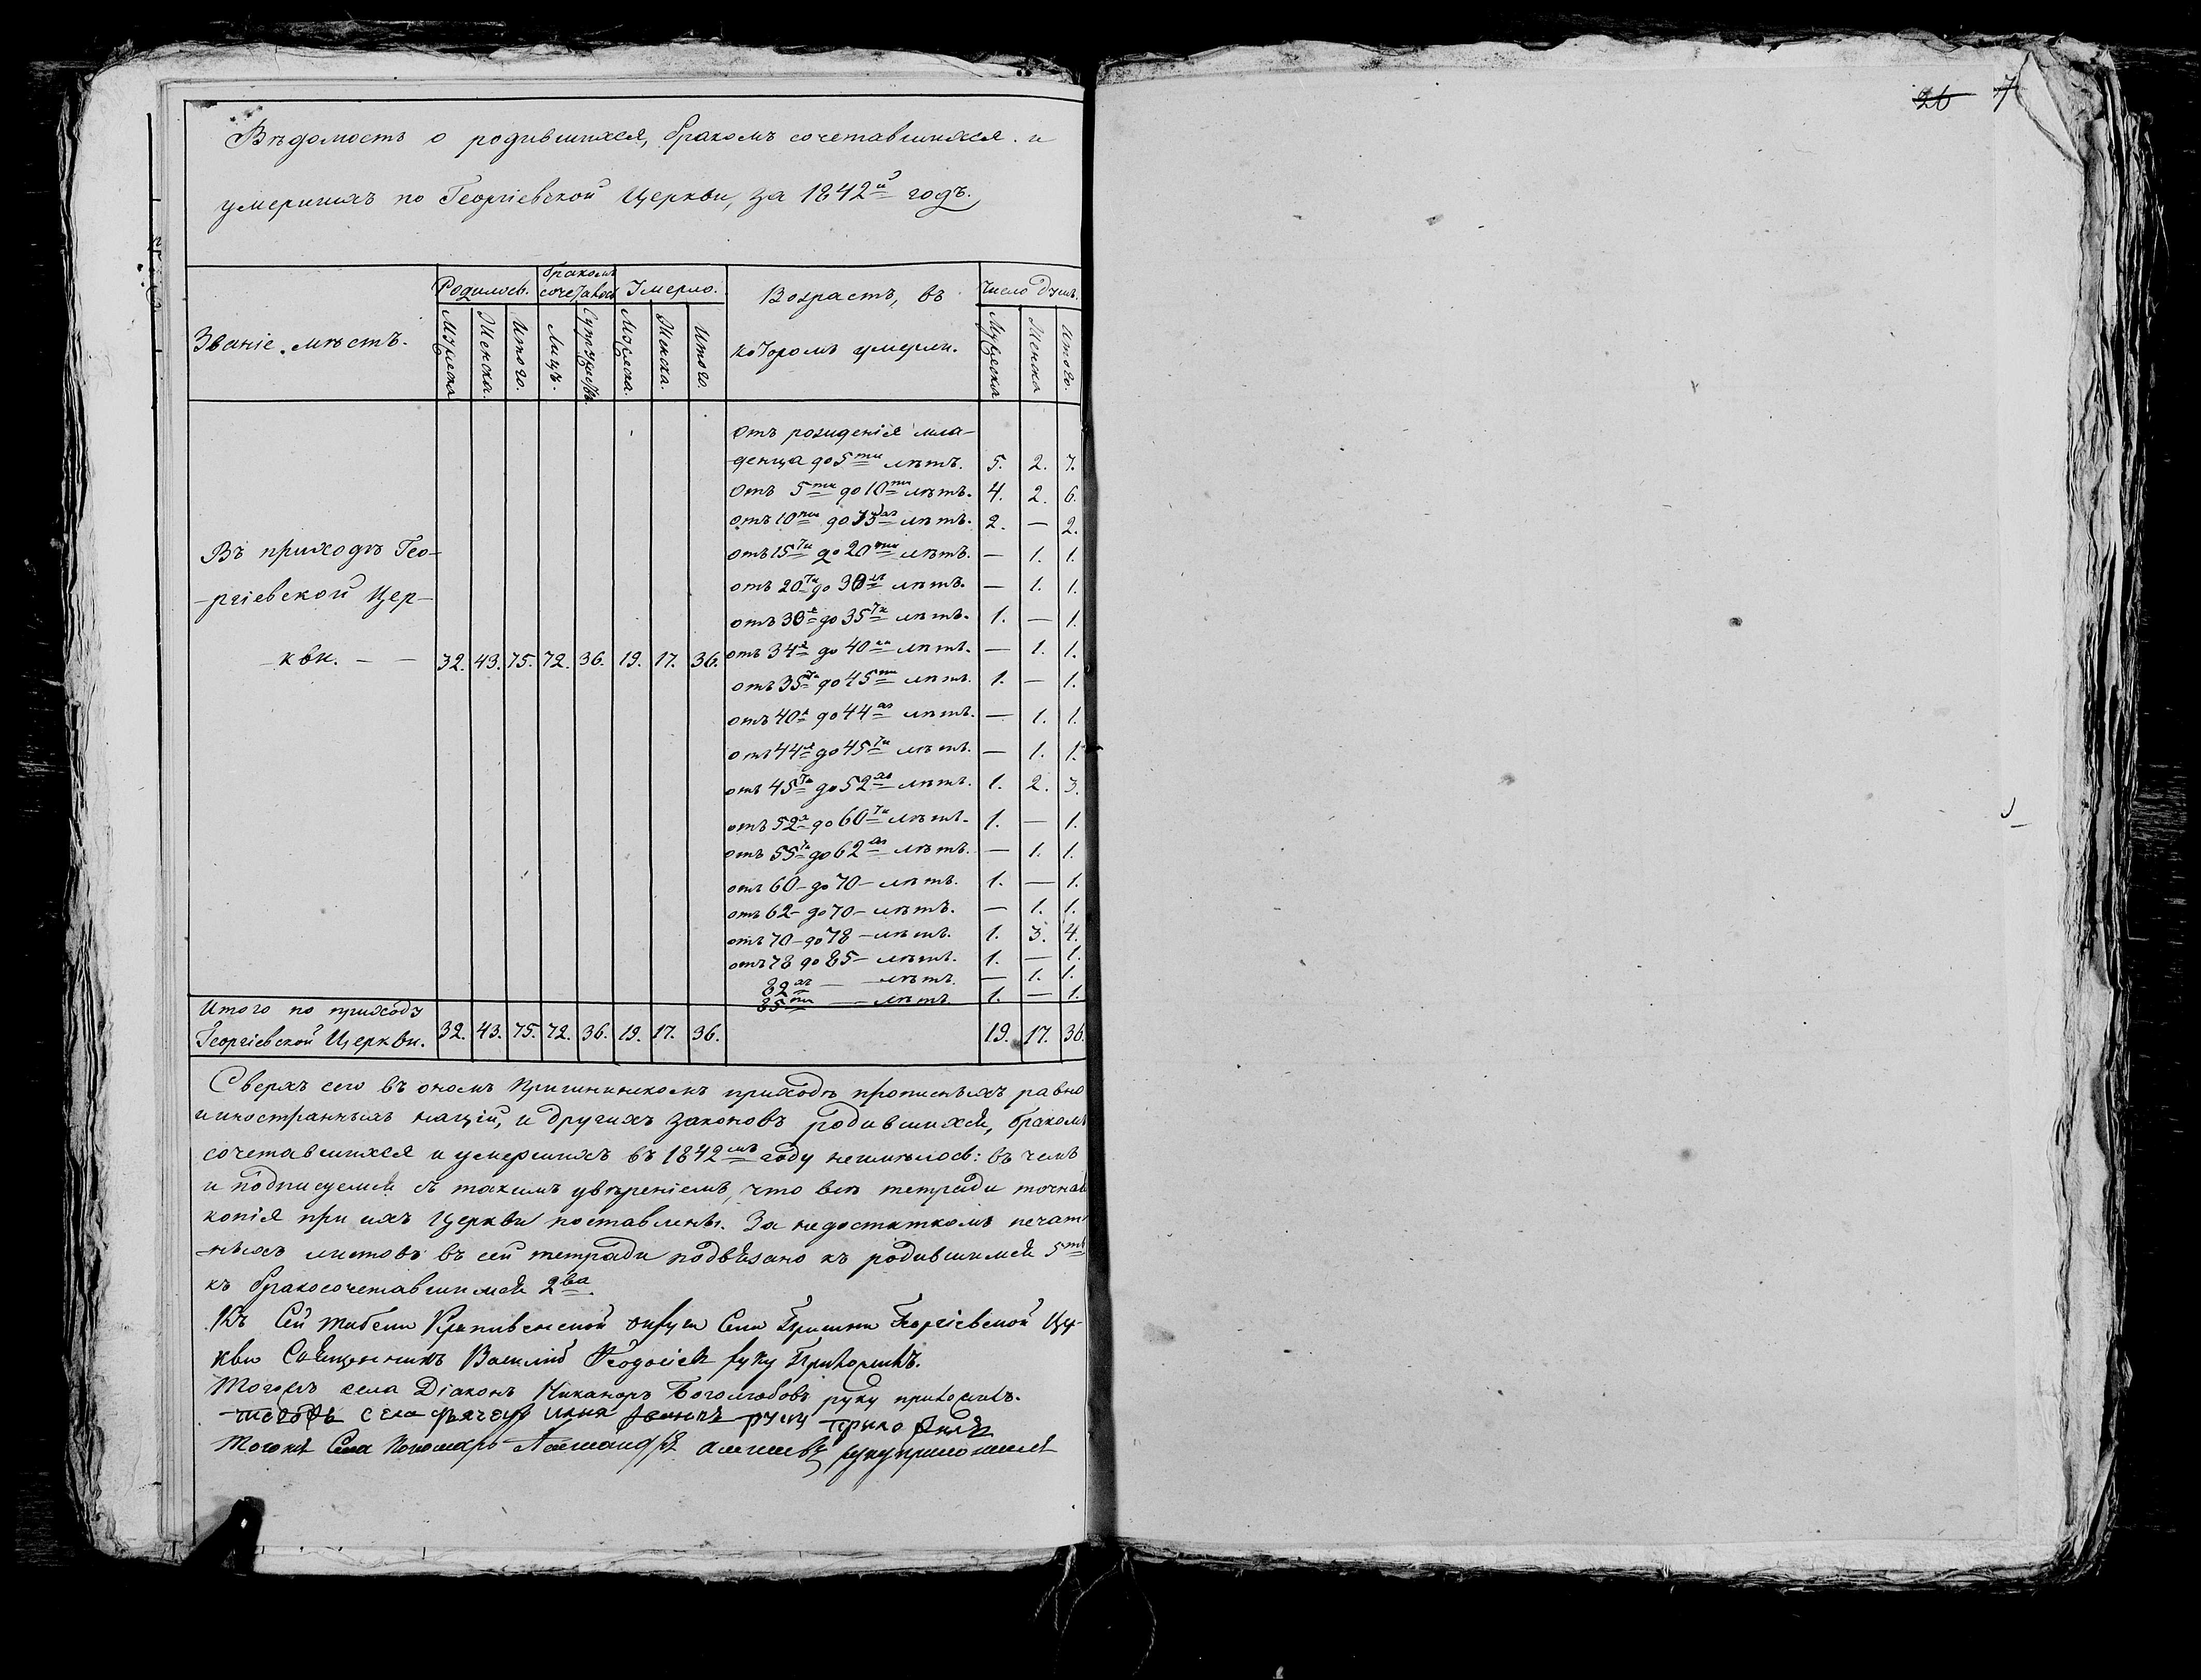 26 7
Вѣдомость о родившихся, бракомъ сочетавшихся и
умершихъ по Георгіевской Церкви, за 1842й годъ.
Званіе мѣстъ.
Родилось.
бракомъ
сочеталось
Умерло.
Возрастъ, въ
которомъ умерли.
Число душъ.
Мужеска Женска. Итого. Лицъ. Супружествъ. Мужеска. Женска. Итого. Мужеска Женска Итого.
Въ приходѣ Гео-
-ргіевской Цер-
-кви. — — 32. 43. 75. 72. 36. 19. 17. 36.
Отъ рожденія мла-
-денца до 5ти лѣтъ. 5. 2. 7.
Отъ 5ти до 10ти лѣтъ. 4. 2. 6.
отъ 10ти до лѣтъ. 2. — 2.
отъ 15ти до 20ти лѣтъ. — 1. 1.
отъ 20ти до лѣтъ. — 1. 1.
отъ до 35ти лѣтъ. 1. — 1.
отъ 34х до 40 лѣтъ. — 1. 1.
отъ 35ти до 45ти лѣтъ. 1. — 1.
отъ 40 до 44 лѣтъ. — 1. 1.
отъ 44х до 45ти лѣтъ. — 1. 1.
отъ 45ти до 52хъ лѣтъ. 1. 2. 3.
отъ 52х до 60ти лѣтъ. 1. — 1.
отъ 55ти до 62хъ лѣтъ. — 1. 1.
отъ 60 — до 70 — лѣтъ. 1. — 1.
отъ 62 — до 70 — лѣтъ. — 1. 1.
отъ 70 — до 78 — лѣтъ. 1. 3. 4.
отъ 78 до 85 — лѣтъ. 1. — 1.
82хъ — — лѣтъ. — 1. 1.
85ти — — лѣтъ. 1. — 1.
Итого по приходу
Георгіевской Церкви. 32. 43. 75. 72. 36. 19. 17. 36. 19. 17. 36.
Сверхъ сего въ ономъ приходѣ равно
и иностранныхъ націй, и другихъ законовъ родившихся, бракомъ
сочетавшихся и умершихъ въ 1842мъ году неимѣлось: въ чемъ
и подписуемся съ такимъ увѣреніемъ, что всѣ тетради точная
копія при ихъ Церкви поставлены. За недостаткомъ печат-
-ныхъ листовъ въ сей тетради подвязано къ родившимся 5ть
къ бракосочетавшимся 2ва.
Къ Сей табели Крапивенской округи Села Георгіевской Цр-
кви Священникъ Василій руку приложилъ.
Тогожъ села Діаконъ Никаноръ Боголюбовъ руку приложилъ.
села руку приложилъ
Тогожъ Села Пономарь руку приложилъ